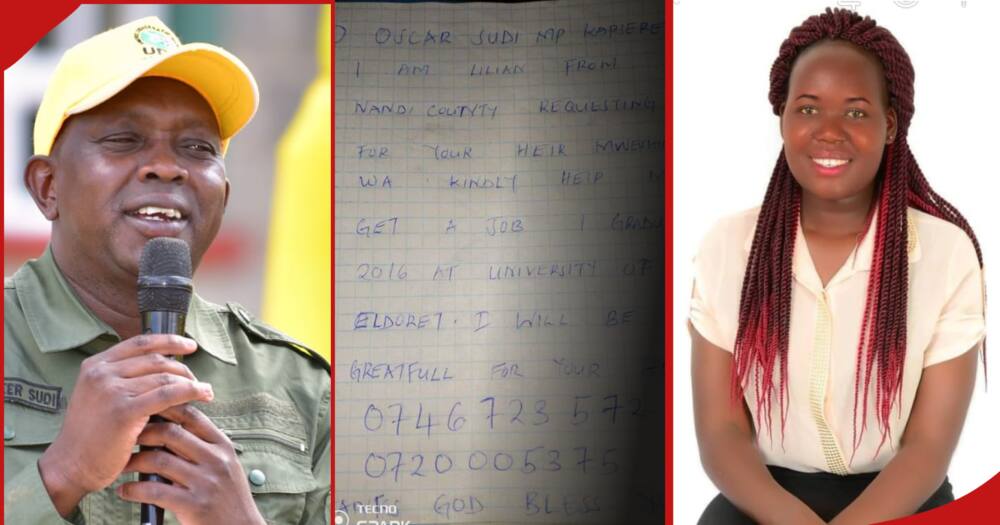 TER SUDI
OSCAR SUDI MP KAPSERE
I AM LILIAN FROM
NANDI COUNTYTY REQUESTING
FOR YOUR HEIR
WA KINDLY HELP
GET A JOB I GRADU
2016 AT UNIVERSITY OF
ELDORET. I WILL BE
GREATFULL FOR YOUR
0746 723 572
0720 005375
GOD BLESS
TECNO
SPARK